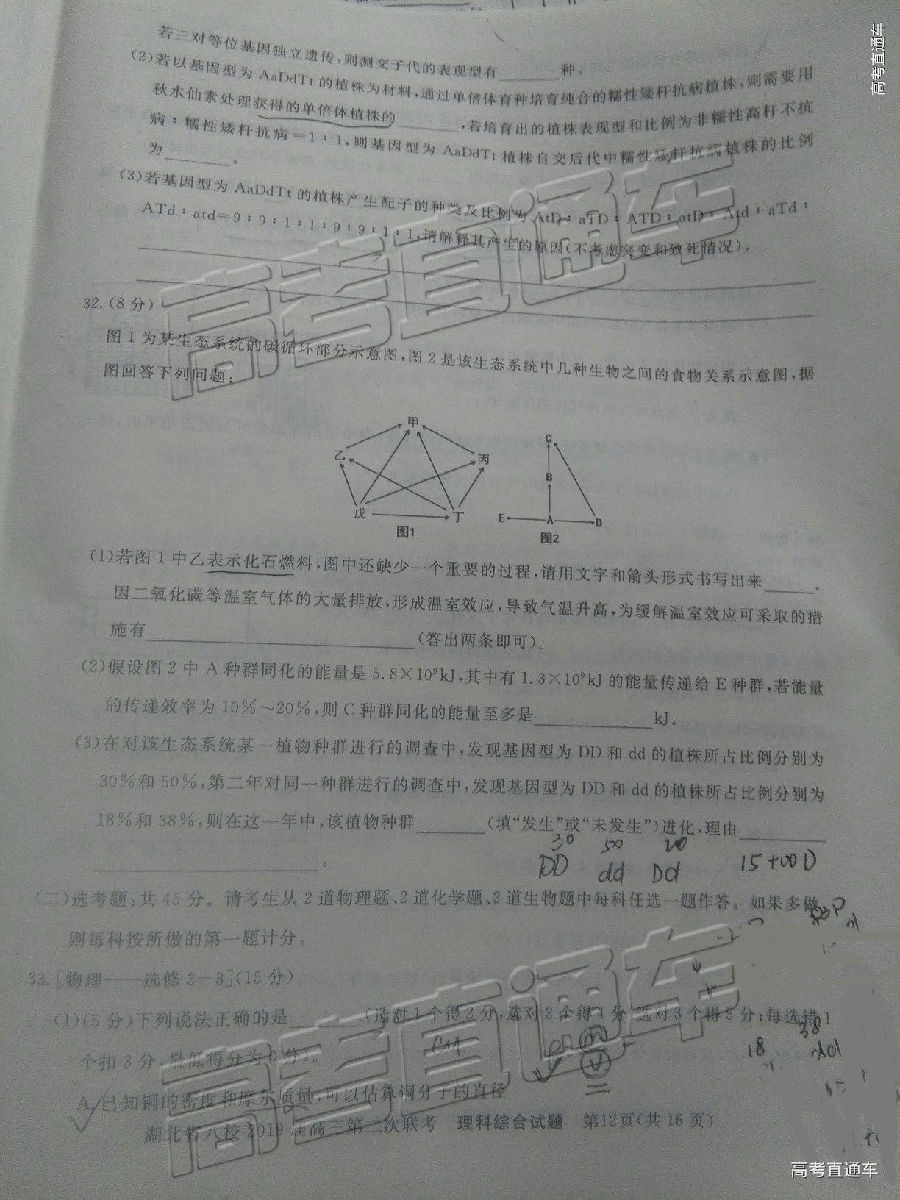 若三对等位基因独立遗传,则测交子代的表现型有______种。
(2)若以基因型为AaDdTt的植株为材料,通过单倍体育种培育纯合的糯性矮秆抗病植株,则需要用
秋水仙素处理获得的单倍体植株的______,若培育出的植株表现型和比例为非糯性高秆不抗
病:糯性矮秆抗病=1:1,则基因型为AaDdTt植株自交后代中糯性矮秆抗病植株的比例
为______。
(3)若基因型为AaDdTt的植株产生配子的种类及比例为AtD:aTD:ATD:atD:Atd:aTd:
ATd:atd=9:9:1:1:9:9:1:1,请解释其产生的原因(不考虑突变和致死情况)。
32.(8分)
图1为某生态系统的碳循环部分示意图,图2是该生态系统中几种生物之间的食物关系示意图,据
图回答下列问题:
甲
乙
丙
戊
丁
图1
C
B
E
A
D
图2
(1)若图1中乙表示化石燃料,图中还缺少一个重要的过程,请用文字和箭头形式书写出来______。
因二氧化碳等温室气体的大量排放,形成温室效应,导致气温升高,为缓解温室效应可采取的措
施有______(答出两条即可)。
(2)假设图2中A种群同化的能量是5.8×10⁹kJ,其中有1.3×10⁹kJ的能量传递给E种群,若能量
的传递效率为10%~20%,则C种群同化的能量至多是______kJ。
(3)在对该生态系统某一植物种群进行的调查中,发现基因型为DD和dd的植株所占比例分别为
30%和50%,第二年对同一种群进行的调查中,发现基因型为DD和dd的植株所占比例分别为
18%和38%,则在这一年中,该植物种群______(填“发生”或“未发生”)进化,理由______
______。
30 50 20
DD dd Dd
(二)选考题:共45分。请考生从2道物理题、2道化学题、2道生物题中每科任选一题作答。如果多做,
则每科按所做的第一题计分。
33.[物理——选修3—3](15分)
(1)(5分)下列说法正确的是______(选对1个得2分,选对2个得4分,选对3个得5分;每选错1
个扣3分,最低得分为0分)。
18 38
A.已知铜的密度和摩尔质量,可以估算铜分子的直径
湖北省八校2019届高三第二次联考 理科综合试题 第12页(共16页)
高考直通车
高考直通车
高考直通车
高考直通车